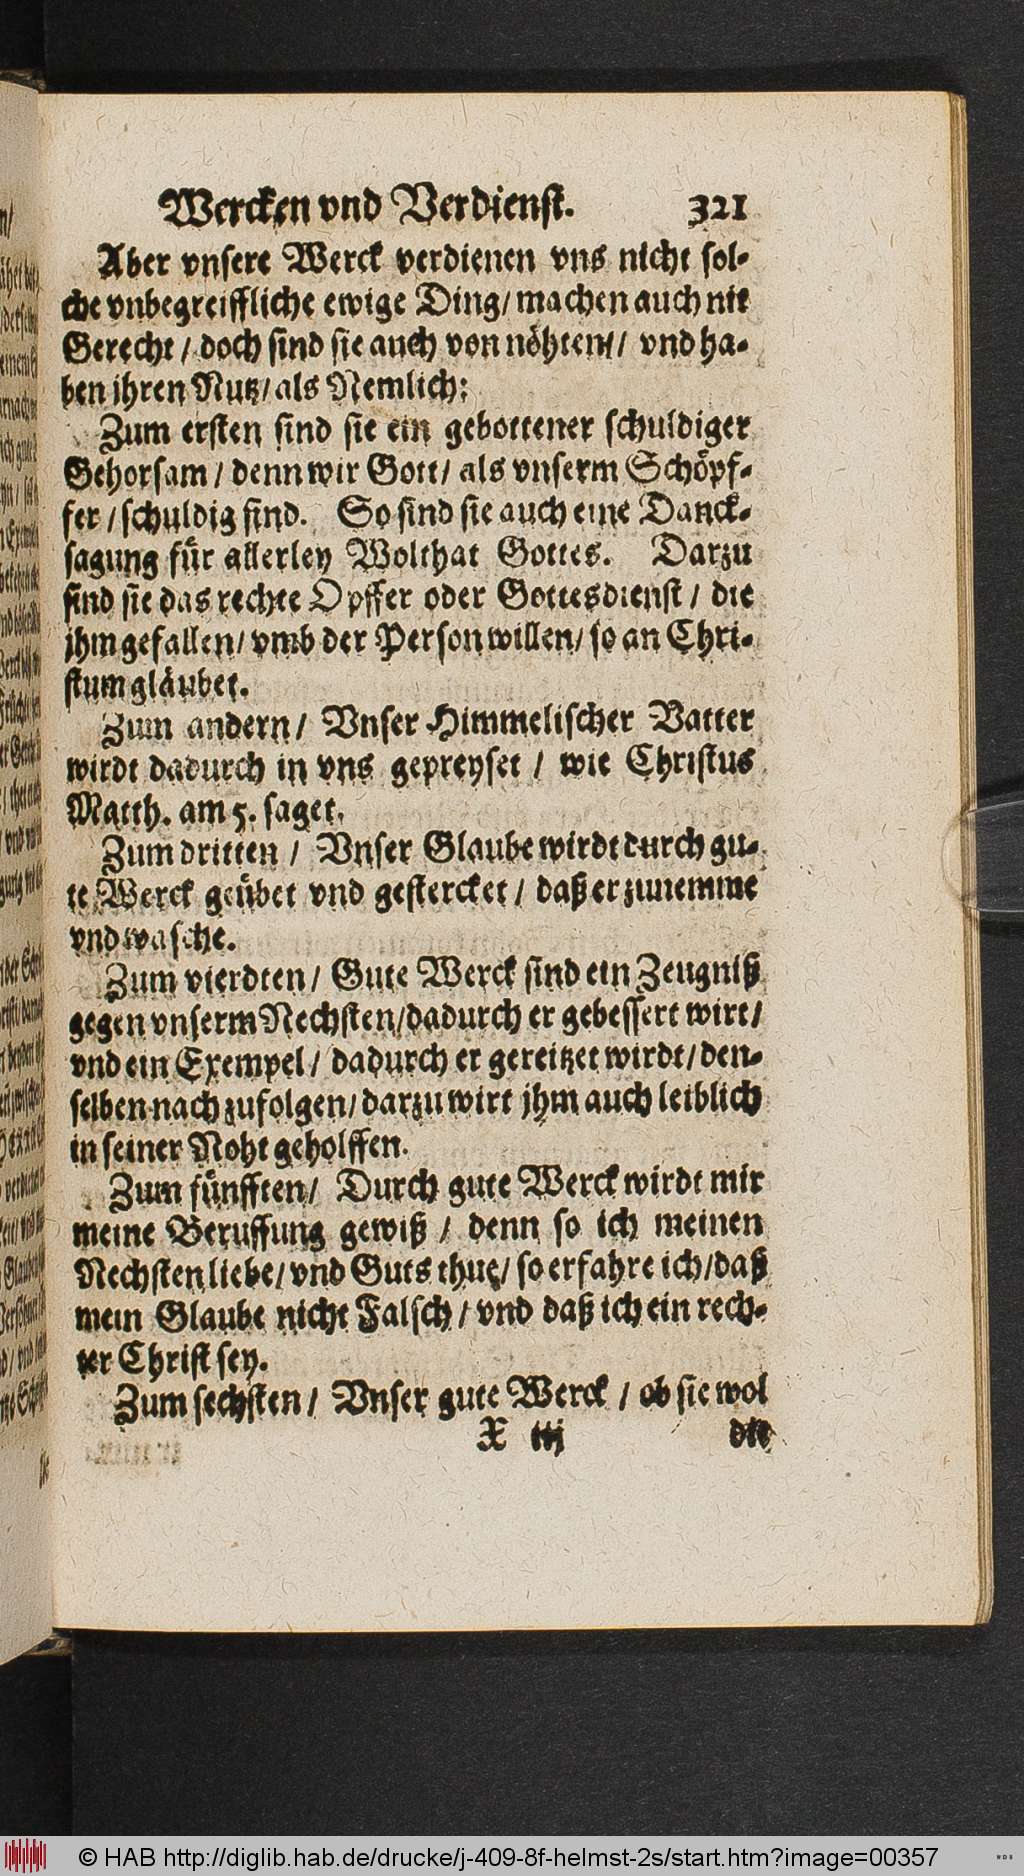 Wercken vnd Verdienst. 321
Aber vnsere Werck verdienen vns nicht sol-
che vnbegreiffliche ewige Ding/ machen auch nit
Gerecht / doch sind sie auch von nöhten / vnd ha-
ben jhren Nutz/ als Nemlich:
Zum ersten sind sie ein gebottener schuldiger
Gehorsam / denn wir Gott/ als vnserm Schöpf-
fer / schuldig sind. So sind sie auch eine Danck-
sagung für allerley Wolthat Gottes. Darzu
sind sie das rechte Opffer oder Gottesdienst / die
jhm gefallen/ vmb der Person willen/ so an Chri-
stum gläubet.
Zum andern / Vnser Himmelischer Vatter
wirdt dadurch in vns gepreyset / wie Christus
Matth. am 5. saget.
Zum dritten / Vnser Glaube wirdt durch gu-
te Werck geübet vnd gestercket / daß er zunemme
vnd wasche.
Zum vierdten / Gute Werck sind ein Zeugniß
gegen vnserm Nechsten/dadurch er gebessert wirt/
vnd ein Exempel / dadurch er gereitzet wirdt/ den-
selben nach zufolgen/ darzu wirt jhm auch leiblich
in seiner Noht geholffen.
Zum fünfften / Durch gute Werck wirdt mir
meine Beruffung gewiß / denn so ich meinen
Nechsten liebe/ vnd Guts thue/ so erfahre ich/daß
mein Glaube nicht Falsch / vnd daß ich ein rech-
ter Christ sey.
Zum sechsten / Vnser gute Werck / ob sie wol
X iij die
© HAB http://diglib.hab.de/drucke/j-409-8f-helmst-2s/start.htm?image=00357